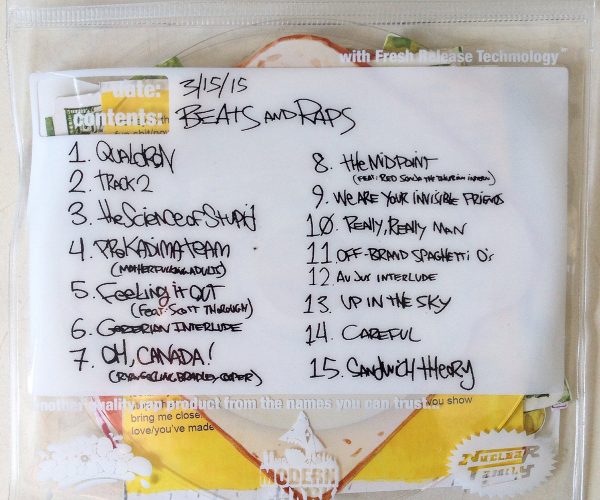 with Fresh Release Technology™
date: 3/15/15
contents: BEATS AND RAPS
1. QUALDRON
2. TRACK 2
3. the Science of Stupid
4. PROKADIMA TEAM
(MOTHERFUCKING ADULTS)
5. Feeling it OUT
(FEAT. SCOTT THOROUGH)
6. INTERLUDE
7. OH, CANADA!
(RYAN GOSLING, BRADLEY COOPER)
8. the MIDPOINT
(FEAT. RED SONJA THE INTERN)
9. WE ARE YOUR INVISIBLE FRIENDS
10. REALLY, REALLY MAN
11. OFF-BRAND SPAGHETTI O's
12. AU JUS INTERLUDE
13. UP IN THE SKY
14. CAREFUL
15. SANDWICH THEORY
another quality rap product from the names you can trust...
you show
bring me close
love/you've made
MODERN
NUCLEAR
FAMILY